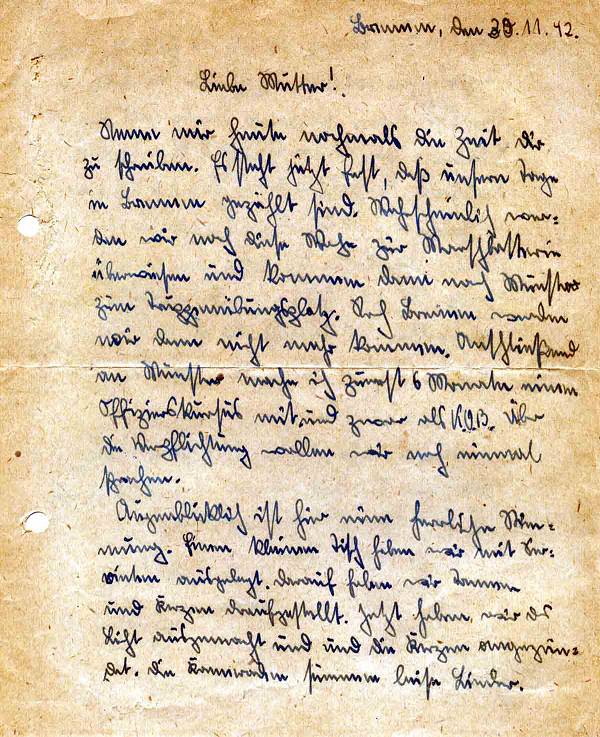 Bremen, den 30.11.42.
Liebe Mutter!
Nehme mir heute nochmals die Zeit dir
zu schreiben. Es steht jetzt fest, daß unsere Tage
in Bremen gezählt sind. Wahscheinlich wer-
den wir noch diese Woche zur Marschbatterie
überwiesen und kommen dann nach Münster
zum Truppenübungsplatz. Nach Bremen werden
wir dann nicht mehr kommen. Anschließend
an Münster mache ich zuerst 6 Monate einen
Offizierskursus mit, und zwar als K.O.B. Über
die Verpflichtung wollen wir noch einmal
sprechen.
Augenblicklich ist hier eine herrliche Stim-
mung. Einen kleinen Tisch haben wir mit Ser-
vieten ausgelegt. darauf haben wir Tannen
und Kerzen draufgestellt. Jetzt haben wir das
Licht ausgemacht und und die Kerzen angezün-
det. die Kameraden summen leise Lieder.